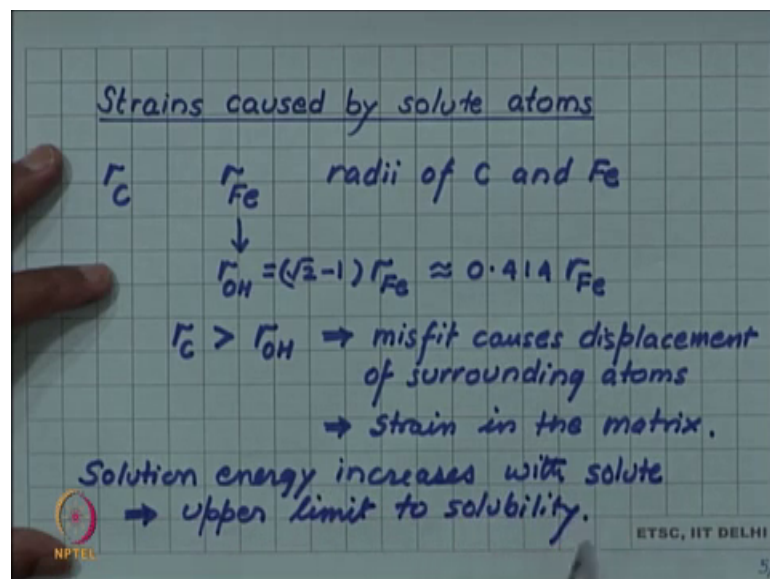 Strains caused by solute atoms
r_C r_Fe radii of C and Fe
↓
r_OH = (√2-1) r_Fe ≈ 0.414 r_Fe
r_C > r_OH ⇒ misfit causes displacement
of surrounding atoms
⇒ strain in the matrix.
Solution energy increases with solute
⇒ upper limit to solubility.
NPTEL
ETSC, IIT DELHI
5